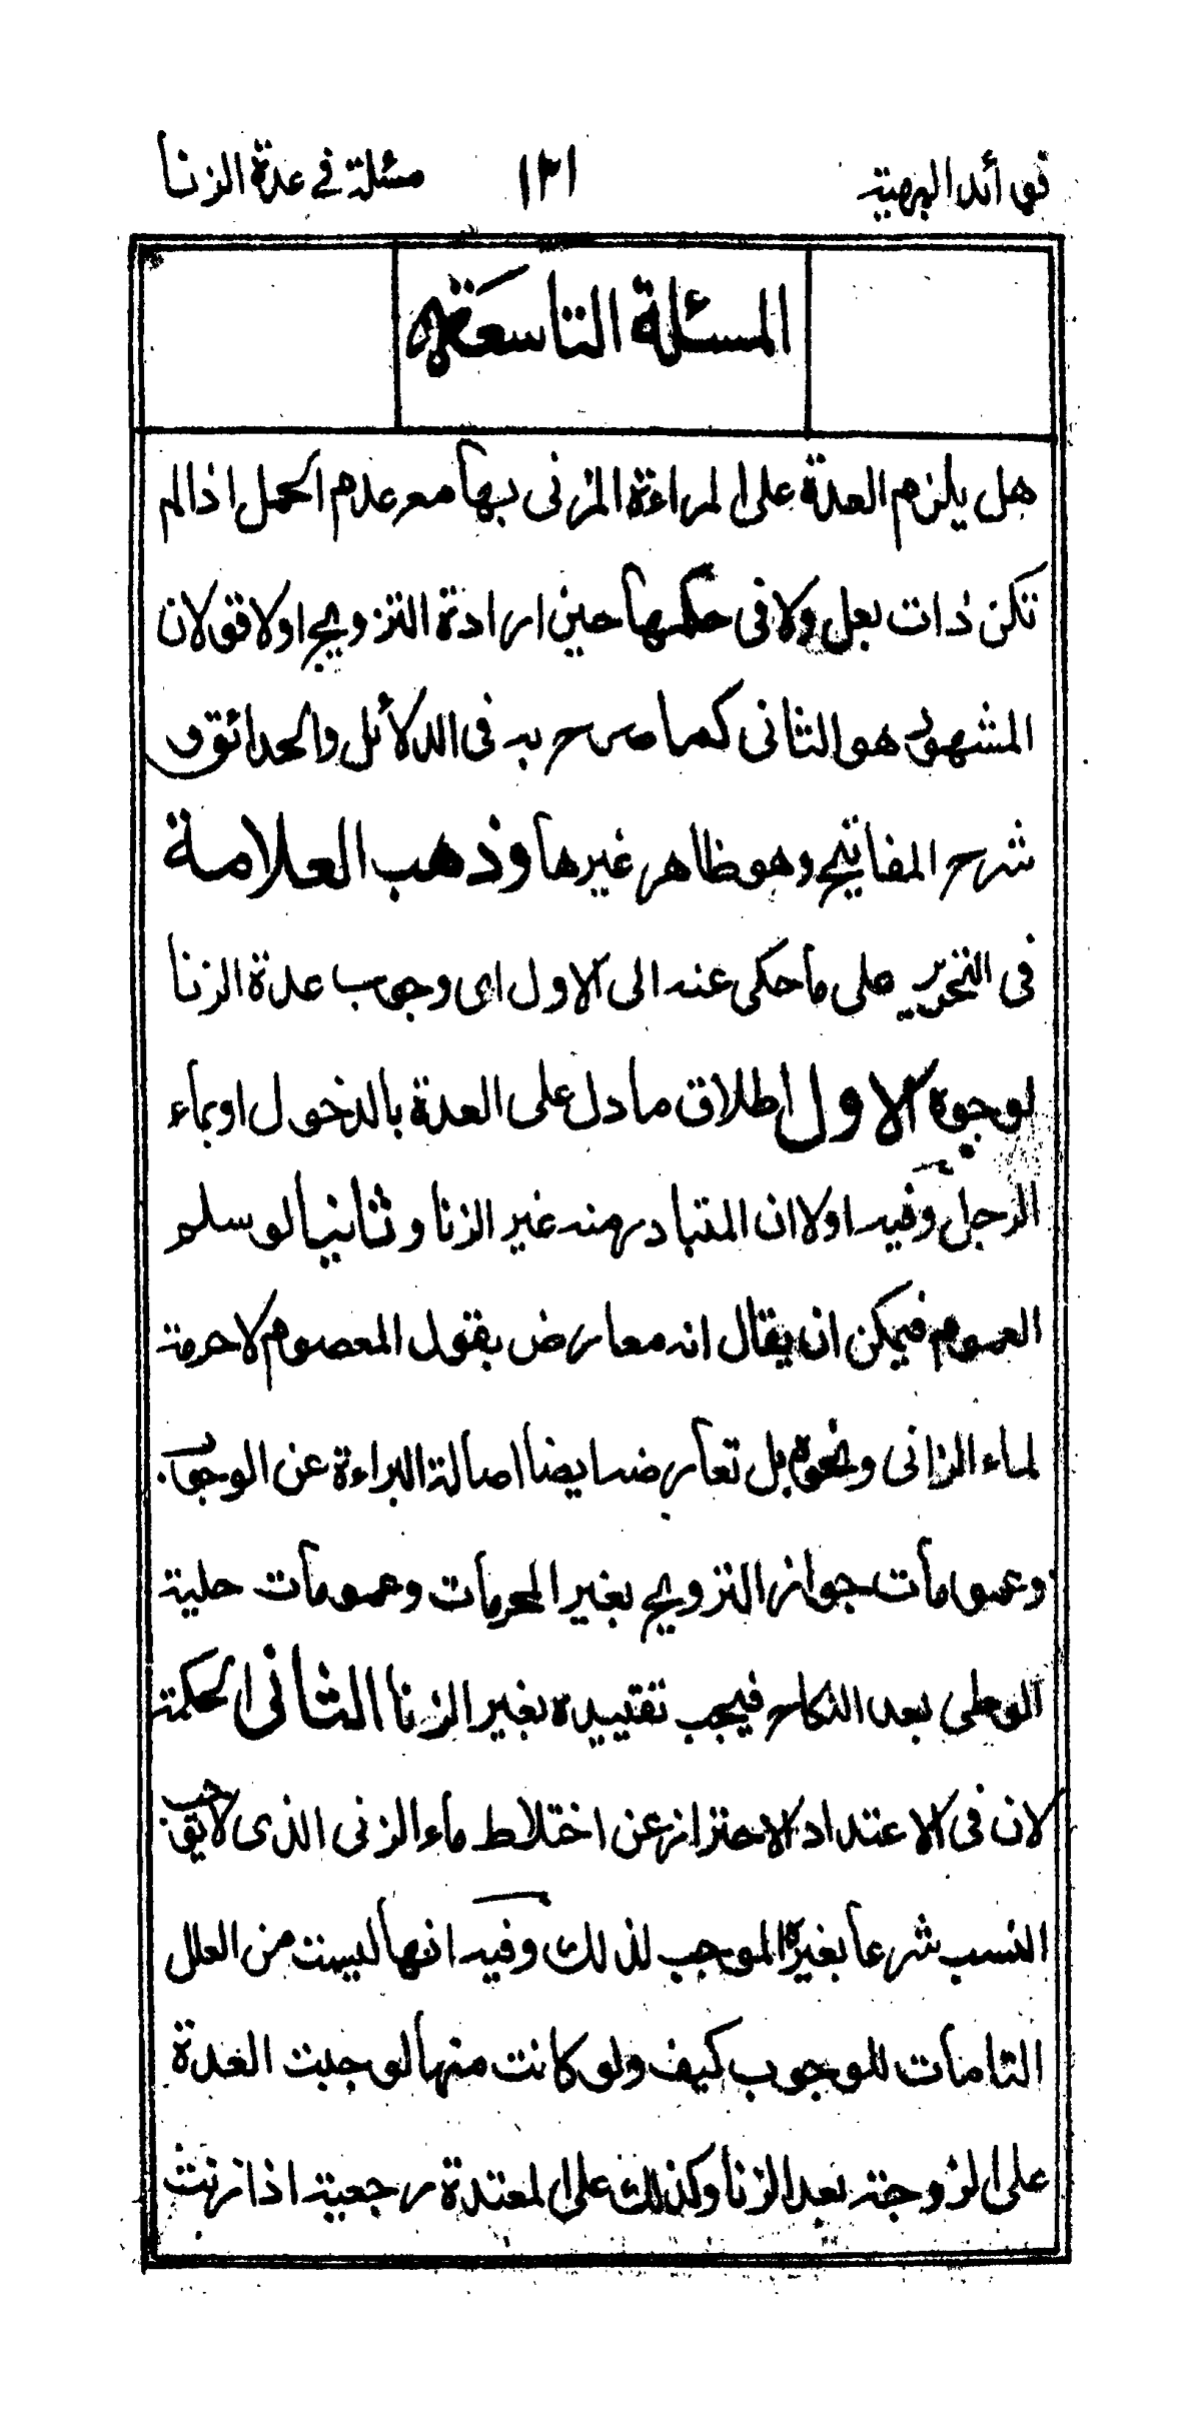 فوائد البهية ١٢١ مسئلة في عدة الزنا
المسئلة التاسعة
هل يلزم العدة على المراءة المزنى بها مع عدم الحمل اذا لم
تكن ذات بعل ولا فى حكمها حين ارادة التزويج اولا قولان
المشهور هو الثانى كما صرح به فى الدلائل والحدائق و
شرح المفاتيح وهو ظاهر غيرها وذهب العلامة
فى التحرير على ما حكى عنه الى الاول اى وجوب عدة الزنا
لوجوه الاول اطلاق ما دل على العدة بالدخول او بماء
الرجل وفيه اولا ان المتبادر منه غير الزنا وثانيا لو سلم
العموم فيمكن ان يقال انه معارض بقول المعصوم لا حرمة
لماء الزانى ونحوه بل تعارضه ايضا اصالة البراءة عن الوجوب
وعمومات جواز التزويج بغير المحرمات وعمومات حلية
الوطى بعد النكاح فيجب تقييده بغير الزنا الثانى الحكمة
لان فى الاعتداد الاحتراز عن اختلاط ماء الزنى الذى لا يوجب
النسب شرعا بغيره الموجب لذلك وفيه انها ليست من العلل
التامات للوجوب كيف ولو كانت منها لوجبت العدة
على الزوجة بعد الزنا وكذلك على المعتدة رجعية اذا زنت